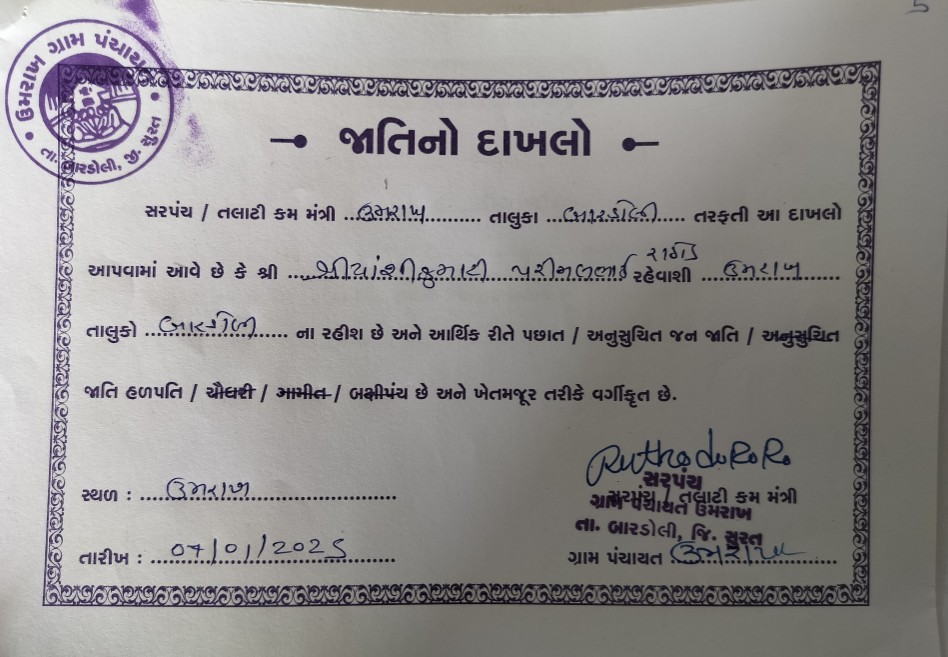 5
ઉમરાખ ગ્રામ પંચાયત
તા. બારડોલી, જી. સુરત
જાતિનો દાખલો
સરપંચ / તલાટી કમ મંત્રી ...ઉમરાખ......... તાલુકા ...બારડોલી..... તરફતી આ દાખલો
રાઠોડ
આપવામાં આવે છે કે શ્રી ...શ્રીયાંશીકુમારી પરીમલભાઈ રહેવાશી ...ઉમરાખ......
તાલુકો ...બારડોલી..... ના રહીશ છે અને આર્થિક રીતે પછાત / અનુસુચિત જન જાતિ / અનુસુચિત
જાતિ હળપતિ / ચૌધરી / ગામીત / બક્ષીપંચ છે અને ખેતમજૂર તરીકે વર્ગીકૃત છે.
સ્થળ : ....ઉમરાખ....................
સરપંચ
સરપંચ / તલાટી કમ મંત્રી
ગ્રામ પંચાયત ઉમરાખ
તા. બારડોલી, જિ. સુરત
તારીખ : ...07/01/2025............
ગ્રામ પંચાયત ...ઉમરાખ............